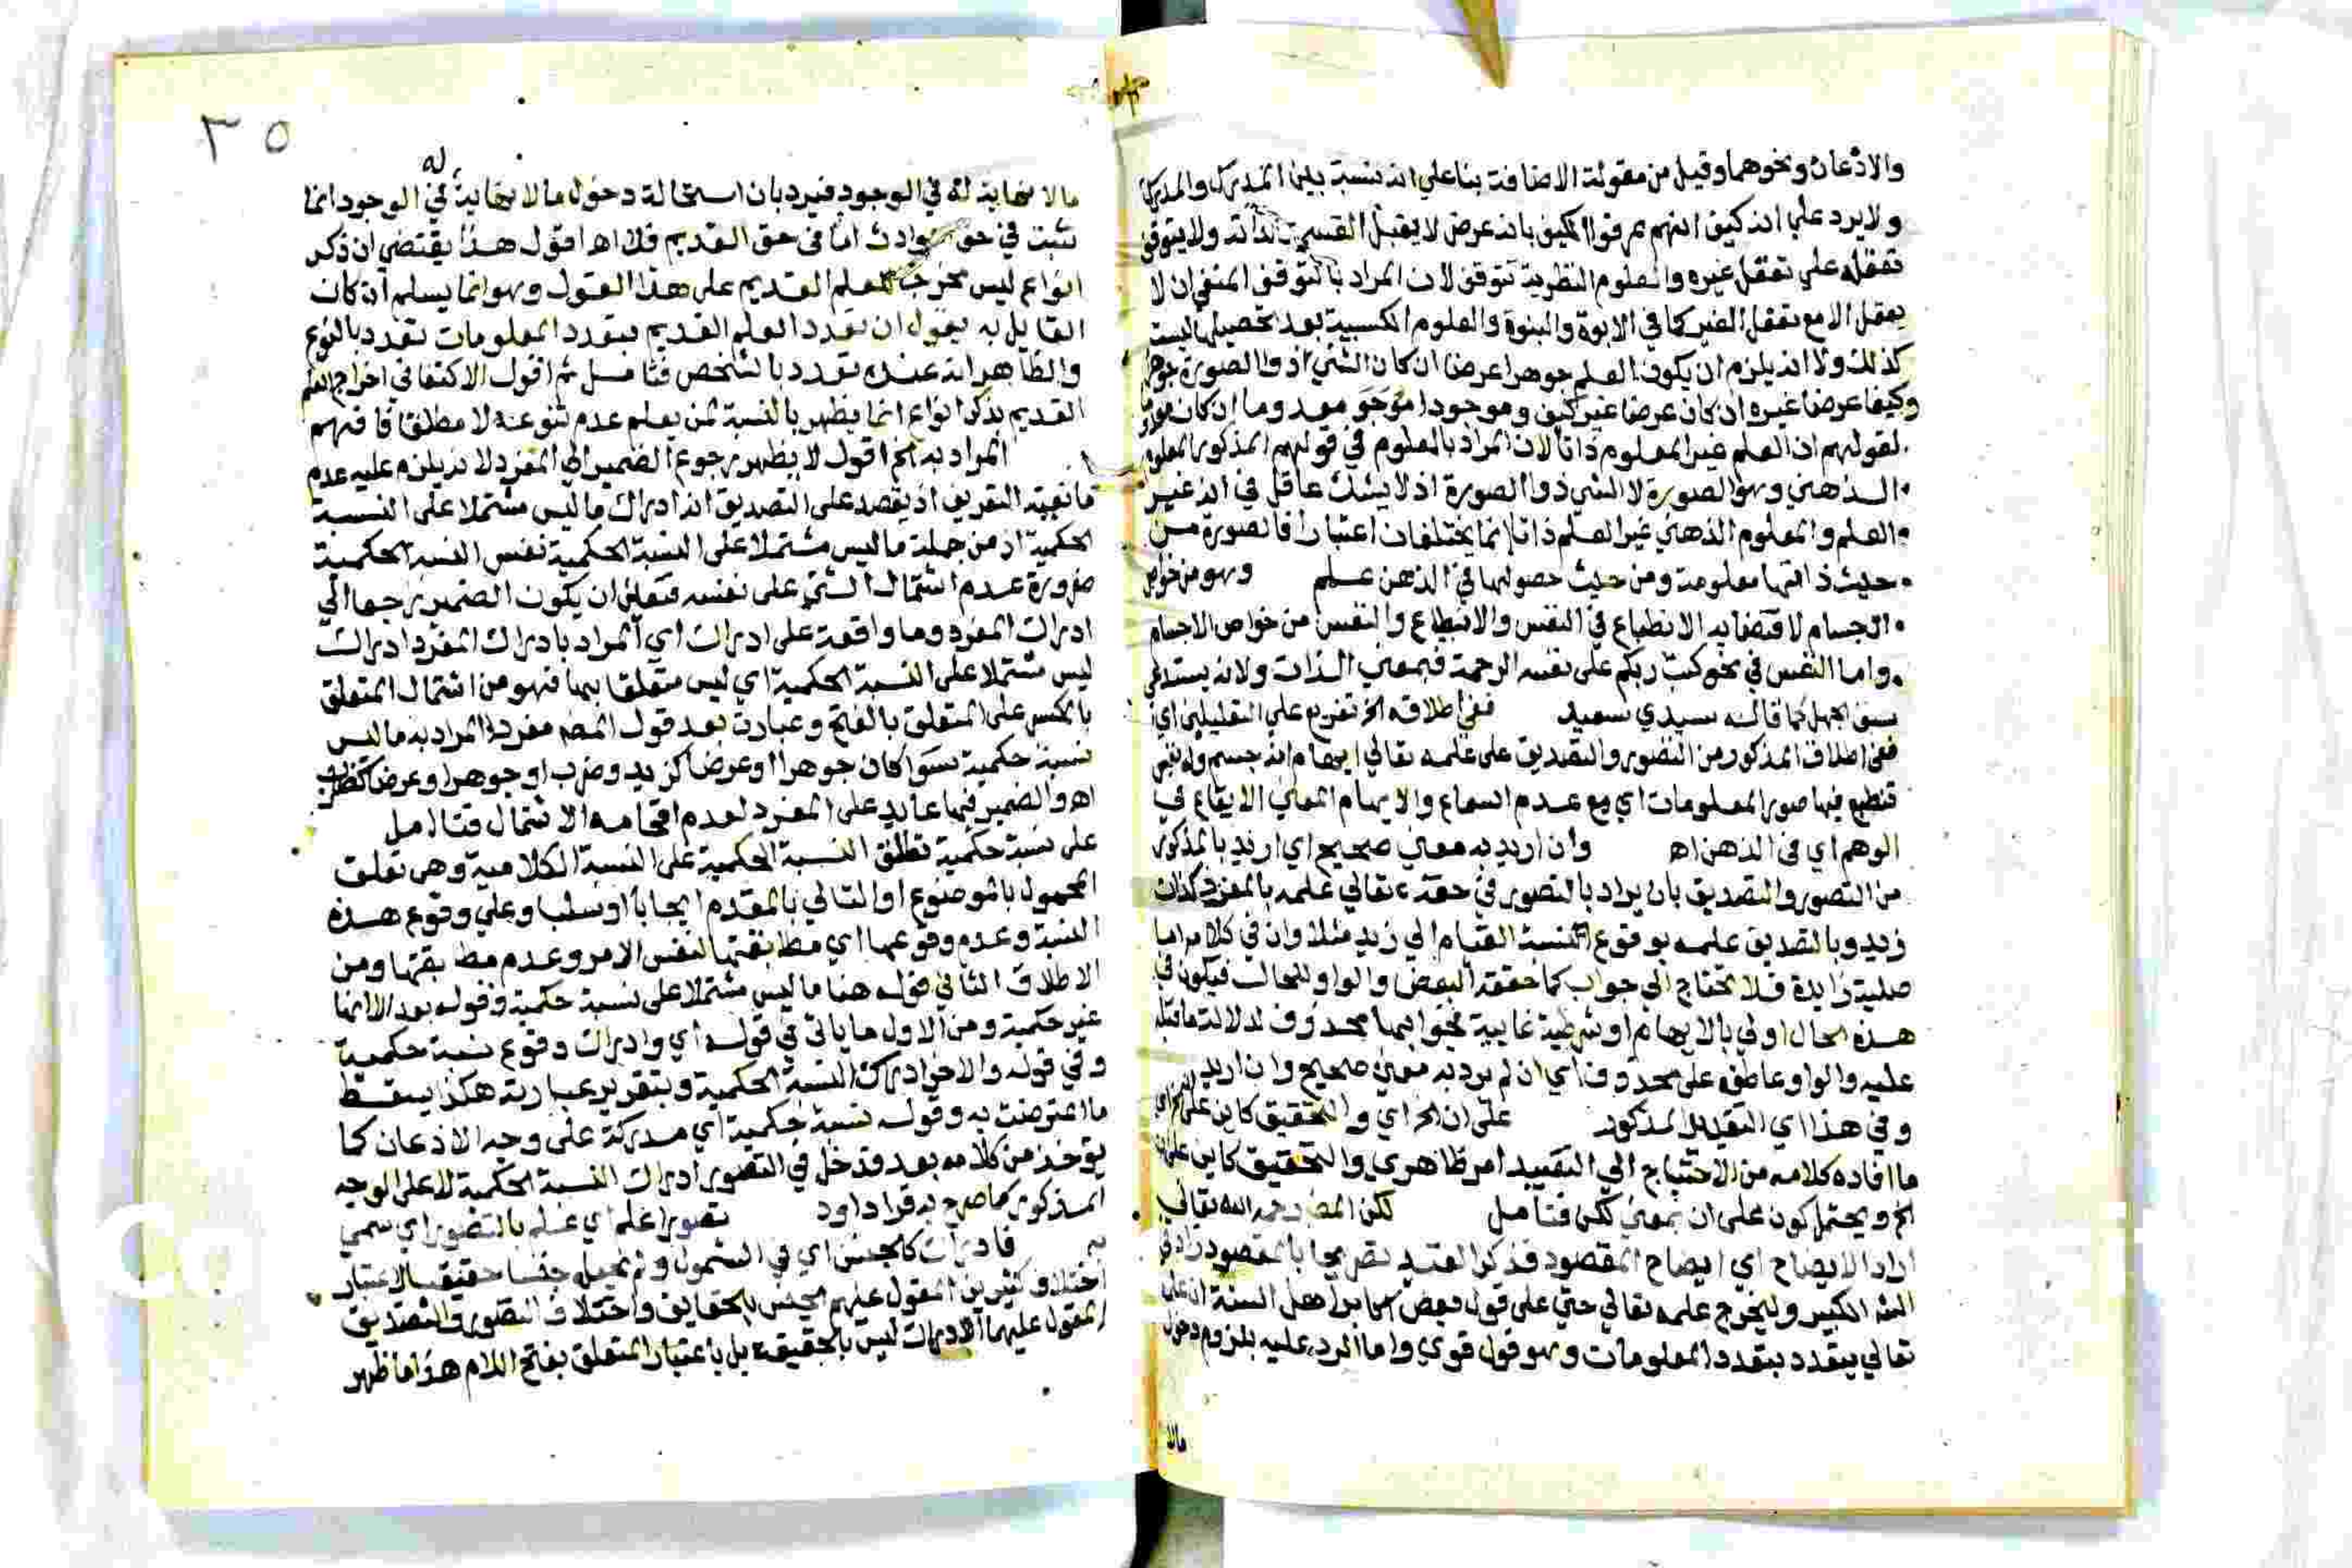 والاذعان ونحوهما وقيل من مقولة الاضافة بنا علي انه نسبة بين المدرِك والمدرَك
ولا يرد علي انه كيف انهم عرفوا الكيف بانه عرض لا يقبل القسمة لذاته ولا يتوقف
تعقله علي تعقل غيره والعلوم النظرية تتوقف لان المراد بالتوقف المنفي ان لا
يعقل الا مع تعقل الغير كما في الابوة والبنوة والعلوم الكسبية بعد تحصيلها ليست
كذلك ولا انه يلزم ان يكون العلم جوهرا عرضا ان كان الشي ذو الصورة جوهرا
وكيفا عرضا غيره ان كان عرضا غير كيف وموجودا معدوما ان كان
لقولهم ان العلم عين المعلوم ذاتا لان المراد بالمعلوم في قولهم المذكور المعلوم
الذهني وهو الصورة لا الشي ذو الصورة اذ لا يشك عاقل في انه غير
العلم والمعلوم الذهني غير العلم ذاتا انما يختلفان اعتبارا فالصورة من
حيث ذاتها معلومة ومن حيث حصولها في الذهن علم وهو من خواص
الاجسام لاقتضائه الانطباع في النفس والانطباع والنفس من خواص الاجسام
واما النفس في نحو كتب ربكم على نفسه الرحمة فبمعني الذات ولانه يستدعي
سبق الجهل كما قاله سيدي سعيد ففي اطلاقه الخ تفريع علي التعليلين اي
ففي اطلاق المذكور من التصور والتصديق على علمه تعالي ايهام انه جسم وله نفس
تنطبع فيها صور المعلومات اي مع عدم السماع والايهام المعني الايقاع في
الوهم اي في الذهن اه وان اريد به معني صحيح اي اريد بالمذكور
من التصور والتصديق بان يراد بالتصور في حقه تعالي علمه بالمفرد كذات
زيد وبالتصديق علمه بوقوع النسبة القيام الي زيد مثلا وان في كلامه اما
صلية زايدة فلا تحتاج الي جواب كما حققه البعض والواو للحال فيكون في
هذه الحال اولي بالايهام او شرطية غايية فجوابها محذوف لدلالة ما قبله
عليه والواو عاطفة على محذوف اي ان لم يرد به معني صحيح وان اريد
وفي هذا اي التقييد المذكور على ان الخ اي والتحقيق كاين على
ما افاده كلامه من الاحتياج الي التقييد امر ظاهري والتحقيق كاين على ان
الخ ويحتمل كون على ان بمعني لكن فتامل لكن المص رحمه الله تعالي
اراد الايضاح اي ايضاح المقصود فذكر القيد تصريحا بالمقصود زاد في
الشر الكبير وليخرج علمه تعالي حتي على قول بعض اكابر اهل السنة ان علمه
تعالي يتعدد بتعدد المعلومات وهو قول قوي واما الرد عليه بلزوم دخول
مالا
٣٥
له
مالا نهاية له في الوجود فيرد بان استحالة دخول مالا نهاية في الوجود انما
تثبت في حق الحوادث اما في حق القديم فلا اه اقول هذا يقتضي ان ذكر
انواع ليس مخرجا للعلم القديم على هذا القول وهو انما يسلم ان كان
القايل به يقول ان تعدد العلم القديم بتعدد المعلومات تعدد بالنوع
والظاهر انه عنده تعدد بالشخص فتامل ثم اقول الاكتفا في اخراج العلم
القديم بذكر انواع انما يظهر بالنسبة لمن يعلم عدم تنوعه لا مطلقا فافهم
المراد به الخ اقول لا يظهر رجوع الضمير الي المفرد لانه يلزم عليه عدم
مانعية التعريف اذ يقصد على التصديق انه ادراك ما ليس مشتملا على النسبة
الحكمية اذ من جملة ما ليس مشتملا على النسبة الحكمية نفس النسبة الحكمية
ضرورة عدم اشتمال الشي على نفسه فتعين ان يكون الضمير راجعا الي
ادراك المفرد وما واقعة على ادراك اي المراد بادراك المفرد ادراك
ليس مشتملا على النسبة الحكمية اي ليس متعلقا بها فهو من اشتمال المتعلق
بالكسر على المتعلق بالفتح وعبارة بعد قول المص مفرد المراد به ما ليس
نسبة حكمية سوا كان جوهرا او عرضا كزيد وضرب او جوهرا وعرضا
اه والضمير فيها عايد على المفرد لعدم اقحامه الاشتمال فتامل
على نسبة حكمية تطلق النسبة الحكمية على النسبة الكلامية وهي تعلق
المحمول بالموضوع او التالي بالمقدم ايجابا او سلبا وعلي وقوع هذه
النسبة وعدم وقوعها اي مطابقتها لنفس الامر وعدم مطابقتها ومن
الاطلاق الثاني قوله هنا ما ليس مشتملا على نسبة حكمية وقوله بعد الا انها
غير حكمية ومن الاول ما ياتي في قوله اي وادراك وقوع نسبة حكمية
وفي قوله والاخر ادراك النسبة الحكمية وبتقرير عبارته هكذا يسقط
ما اعترضت به وقوله نسبة حكمية اي مدركة على وجه الاذعان كما
يوخذ من كلامه بعد فدخل في التصور ادراك النسبة الحكمية لا على الوجه
المذكور كما صرح به قرا داود تصورا علم اي علم بالتصور اي سمي
به فادراك كالجنس اي في الشمول ولم يجعل جنسا حقيقيا لاعتبار
اختلاف كثيرين المقول عليهم الجنس بالحقايق واختلاف التصور والتصديق
المقول عليهما الادراك ليس بالحقيقة بل باعتبار المتعلق بفتح اللام هذا ما ظهر